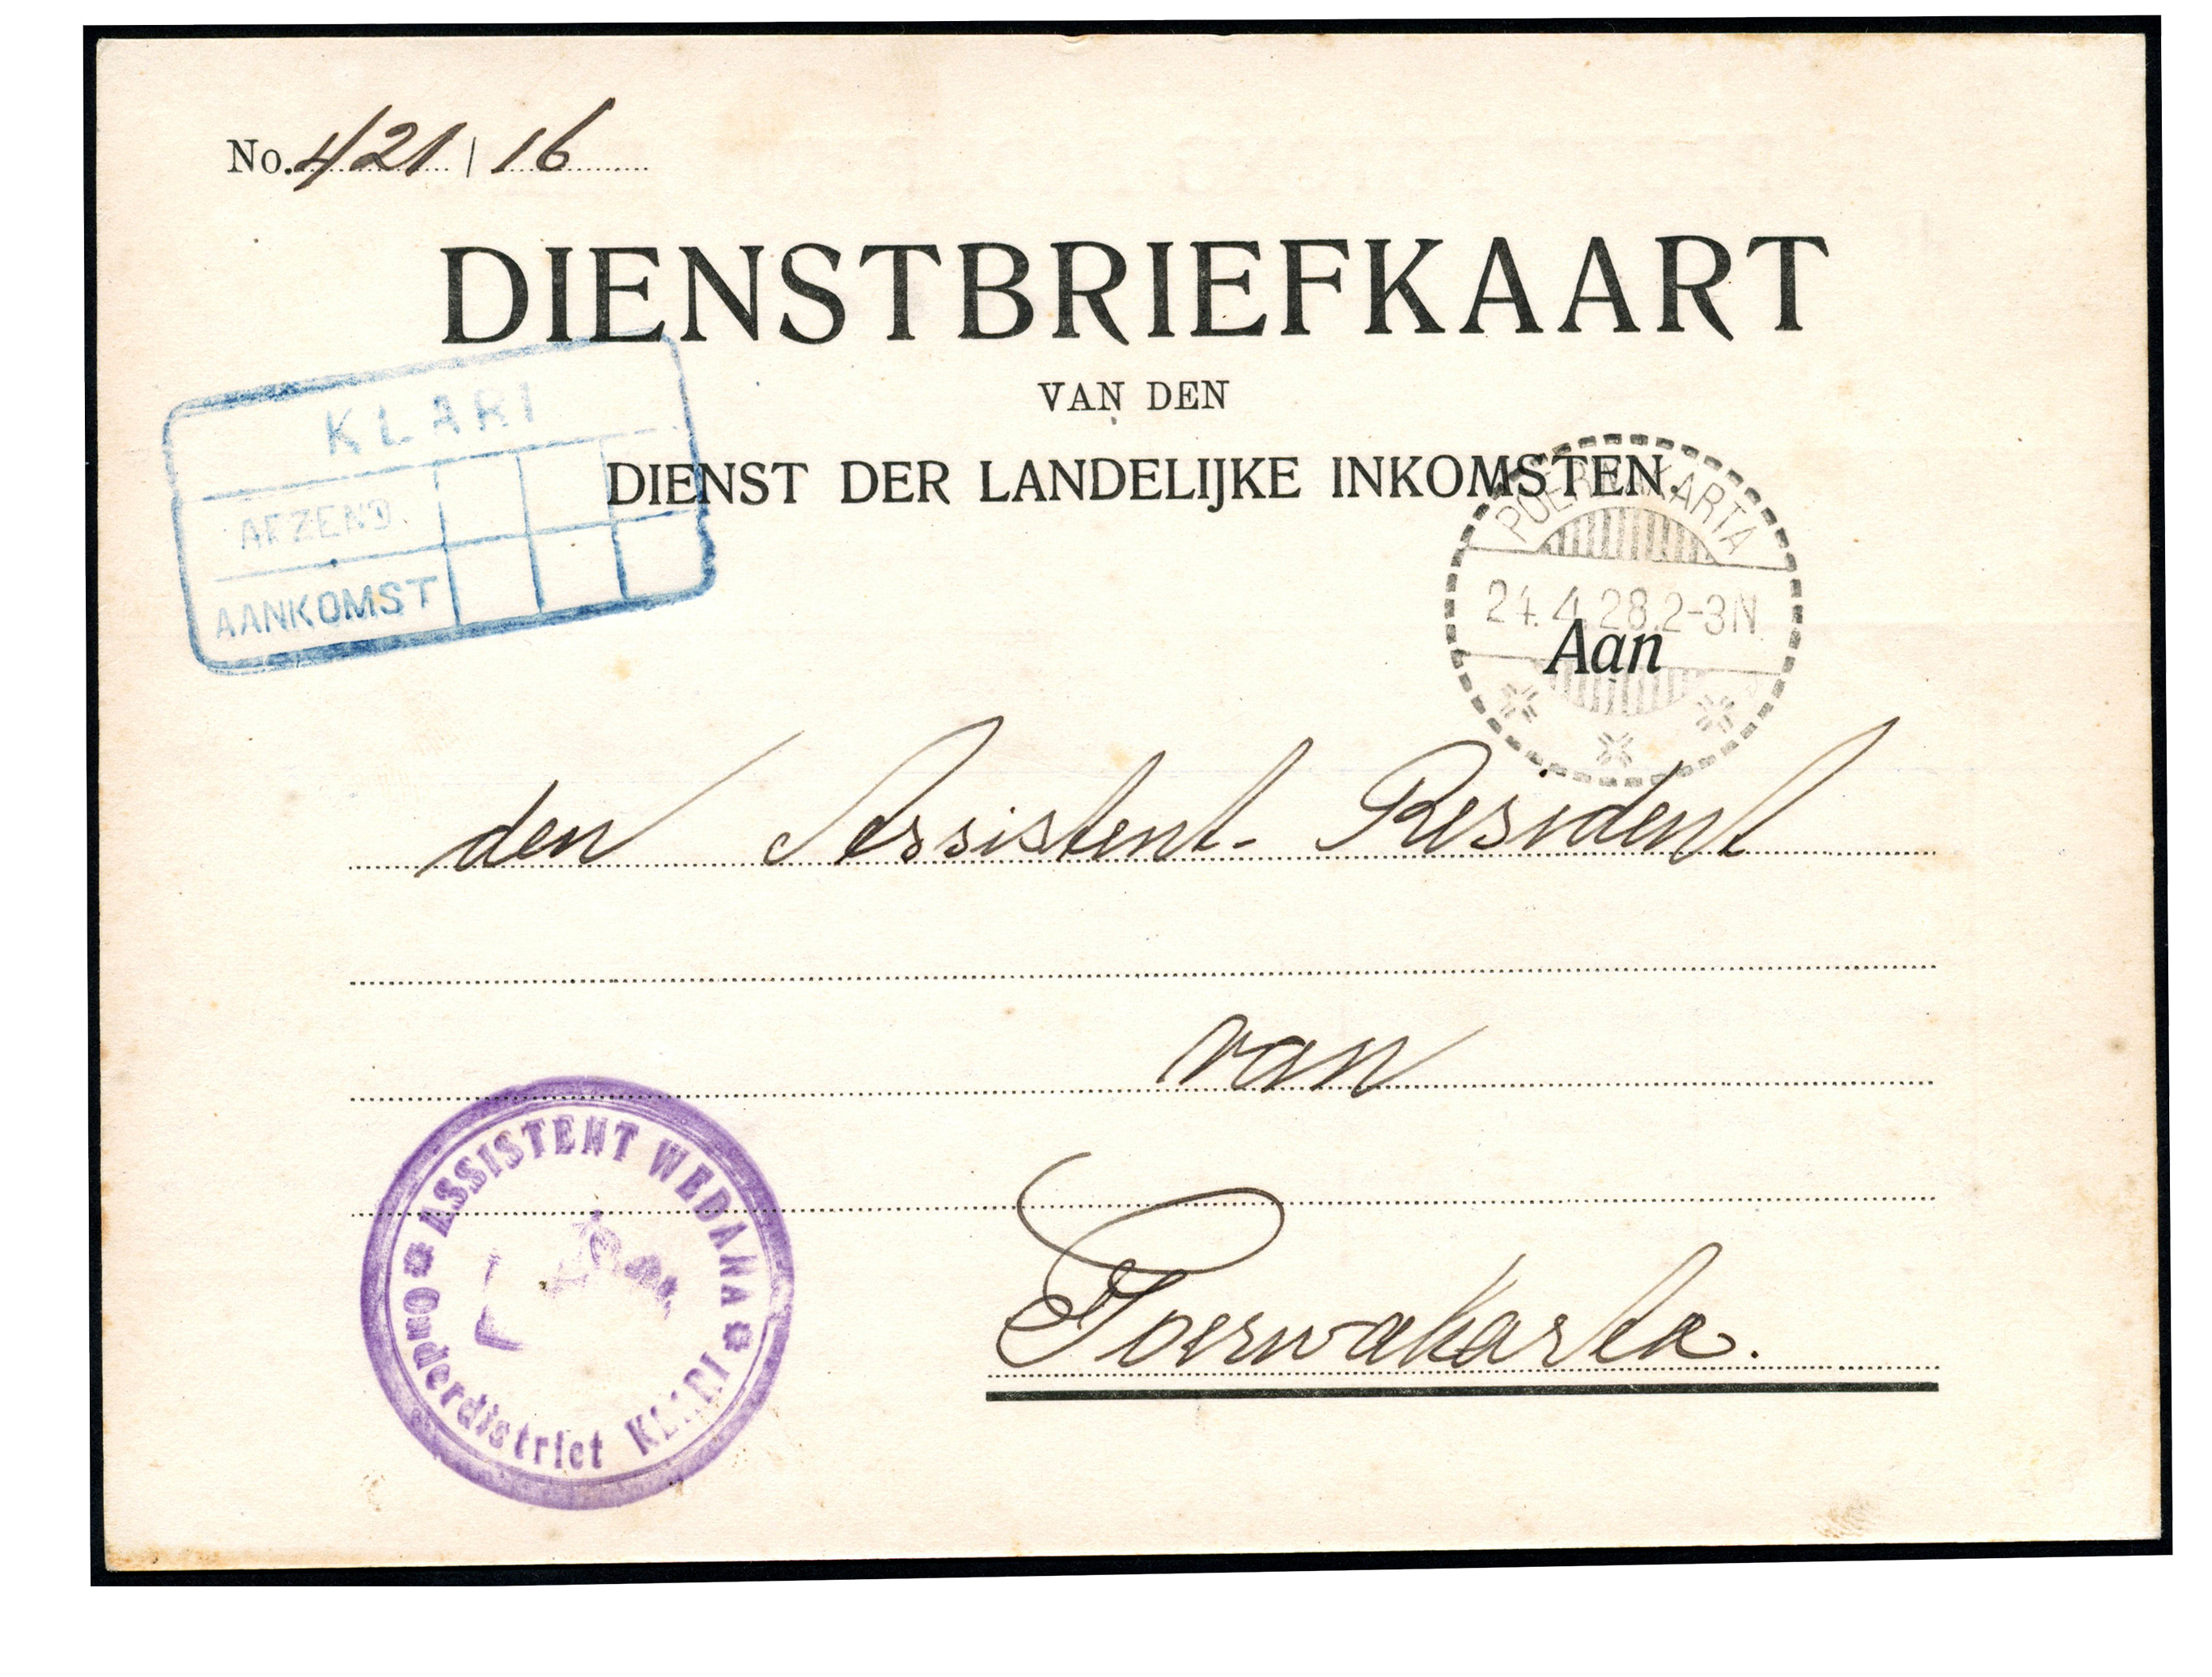 No. 421 | 16
DIENSTBRIEFKAART
VAN DEN
DIENST DER LANDELIJKE INKOMSTEN.
KLARI
AFZEND.
AANKOMST
POERWAKARTA
24.4.28.2-3N
Aan
den Assistent-Resident
van
Poerwakarta.
ASSISTENT WEDANA
Onderdistrict KLARI